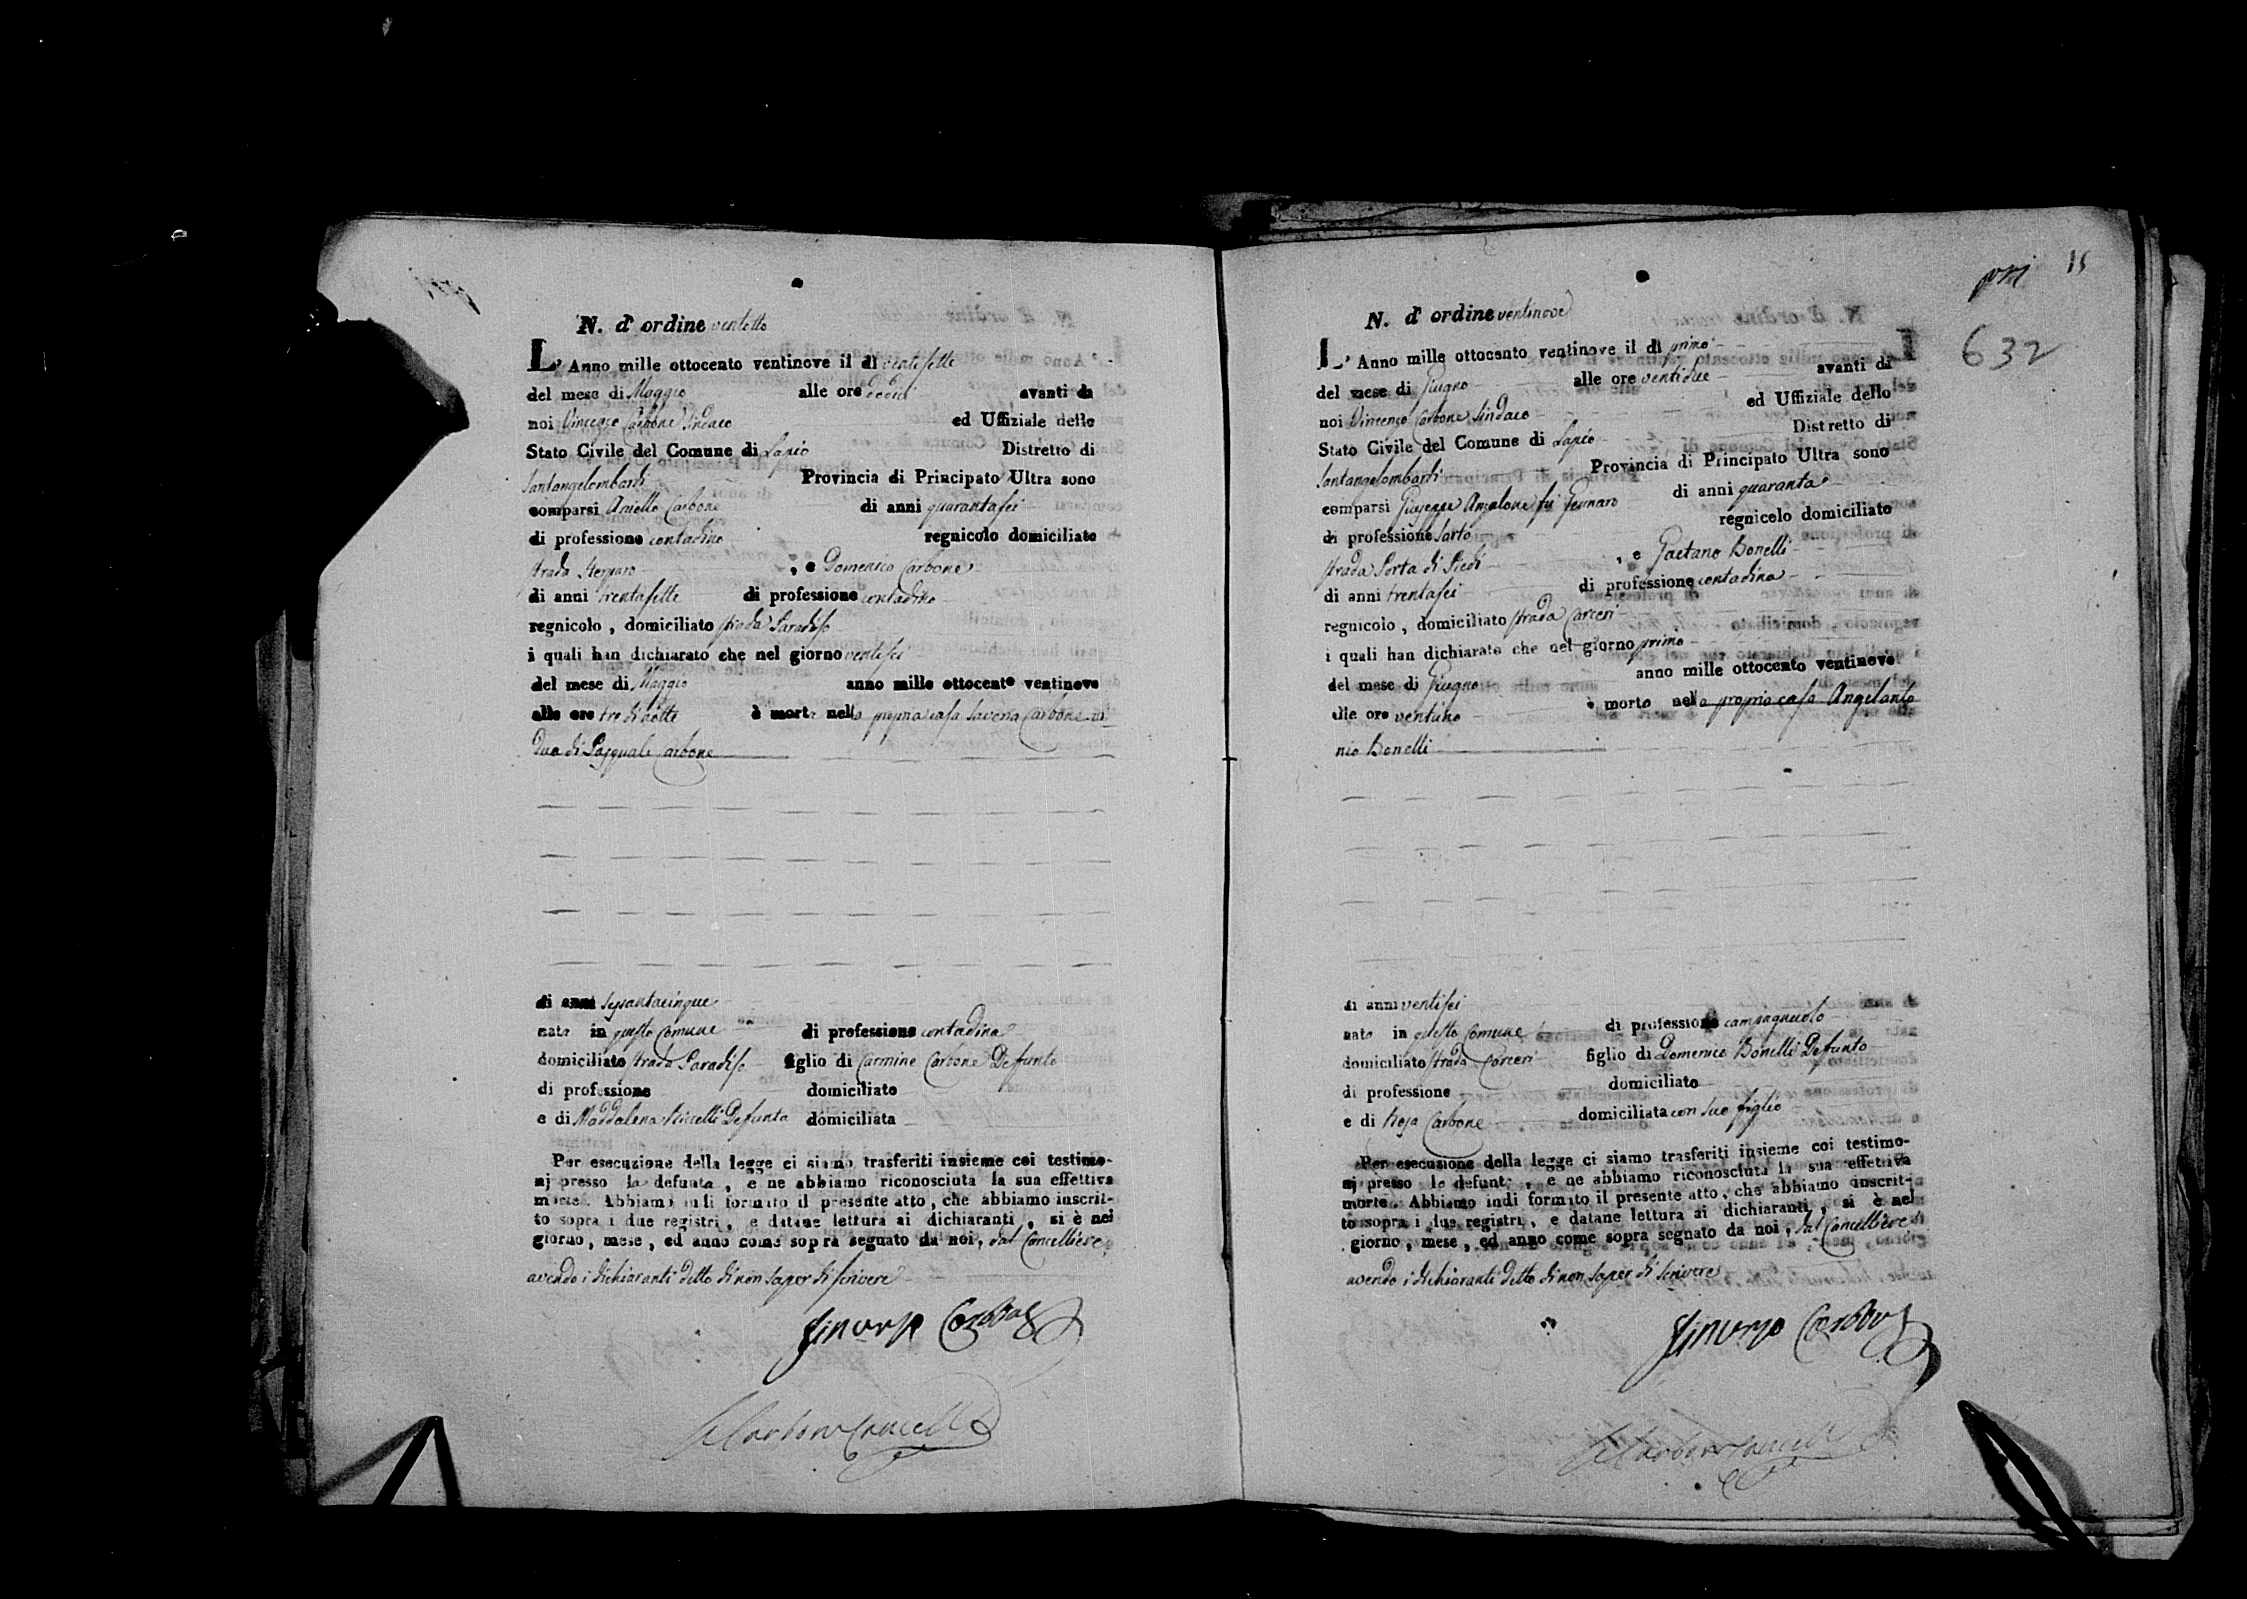 N. d' ordine ventotto
L' Anno mille ottocento ventinove il dì ventisette
del mese di Maggio alle ore dodici avanti da
noi Vincenzo Carbone Sindaco ed Uffiziale dello
Stato Civile del Comune di Lapio Distretto di
Santangelombardi Provincia di Principato Ultra sono
comparsi Aniello Carbone di anni quarantasei
di professione contadino regnicolo domiciliato
strada , e Domenico Carbone
di anni trentasette di professione contadino
regnicolo , domiciliato strada Paradiso
i quali han dichiarato che nel giorno ventisei
del mese di Maggio anno mille ottocento ventinove
alle ore tre di notte è morta nella propria casa Saveria Carbone ve
dua di Pasquale Carbone
di anni sessantacinque
nata in questo Comune di professione contadina
domiciliato strada Paradiso figlio di Carmine Carbone Defunto
di professione domiciliato
e di Maddalena Defunta domiciliata
Per esecuzione della legge ci siamo trasferiti insieme coi testimo-
nj presso la defunta , e ne abbiamo riconosciuta la sua effettiva
morte. Abbiamo indi formato il presente atto , che abbiamo inscrit-
to sopra i due registri, e datane lettura ai dichiaranti , si è nel
giorno , mese , ed anno come sopra segnato da noi, dal Cancelliere,
avendo i dichiaranti detto di non saper di scrivere
Vincenzo Carbone
Carbone Cancell
15
632
N. d' ordine ventinove
L' Anno mille ottocento ventinove il dì primo
del mese di Giugno alle ore ventidue avanti da
noi Vincenzo Carbone Sindaco ed Uffiziale dello
Stato Civile del Comune di Lapio Distretto di
Santangelombardi Provincia di Principato Ultra sono
comparsi Giuseppe Anzalone fu Gennaro di anni quaranta
di professione sarto regnicolo domiciliato
strada Porta di Piedi , e Gaetano Bonelli
di anni trentasei di professione contadino
regnicolo , domiciliato strada Carceri
i quali han dichiarato che nel giorno primo
del mese di Giugno anno mille ottocento ventinove
alle ore ventuno è morto nella propria casa Angelanto
nio Bonelli
di anni ventisei
nato in questo Comune di professione campagnuolo
domiciliato strada Carceri figlio di Domenico Bonelli Defunto
di professione domiciliato
e di Rosa Carbone domiciliata con suo figlio
Per esecuzione della legge ci siamo trasferiti insieme coi testimo-
nj presso lo defunto , e ne abbiamo riconosciuta la sua effettiva
morte. Abbiamo indi formato il presente atto , che abbiamo inscrit-
to sopra i due registri , e datane lettura ai dichiaranti , si è nel
giorno , mese , ed anno come sopra segnato da noi , dal Cancelliere
avendo i dichiaranti detto di non saper di scrivere
Vincenzo Carbone
Carbone Cancell